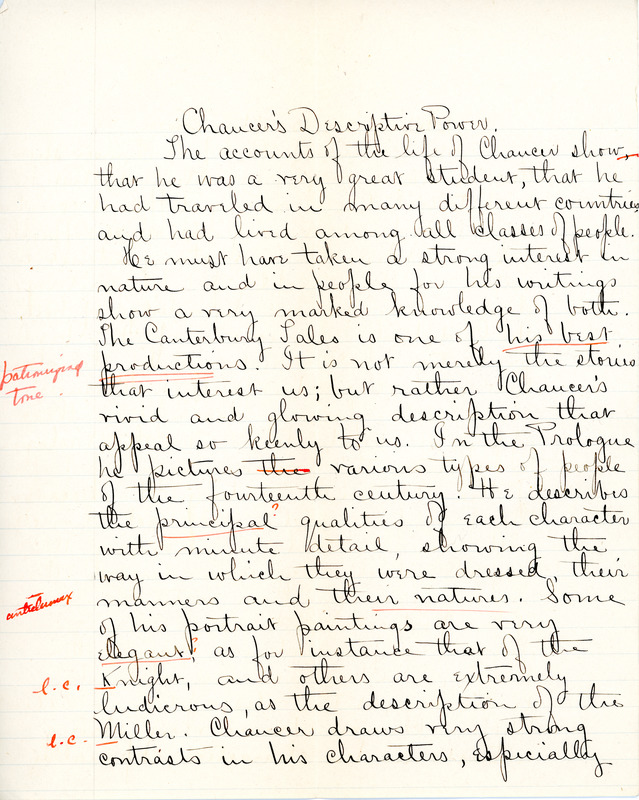 Chaucer's Descriptive Power.
The accounts of the life of Chaucer show,
that he was a very great student, that he
had traveled in many different countries
and had lived among all classes of people.
He must have taken a strong interest in
nature and in people for his writings
show a very marked knowledge of both.
The Canterbury Tales is one of his best
productions. It is not merely the stories
patronizing
tone.
that interest us; but rather Chaucer's
vivid and glowing description that
appeal so keenly to us. In the Prologue
he pictures the various types of people
of the fourteenth century. He describes
the principal? qualities of each character
with minute detail, showing the
way in which they were dressed, their
anticlimax
manners and their natures. Some
of his portrait paintings are very
elegant?, as for instance that of the
l.c. Knight, and others are extremely
ludicrous, as the description of the
l.c. Miller. Chaucer draws very strong
contrasts in his characters, especially